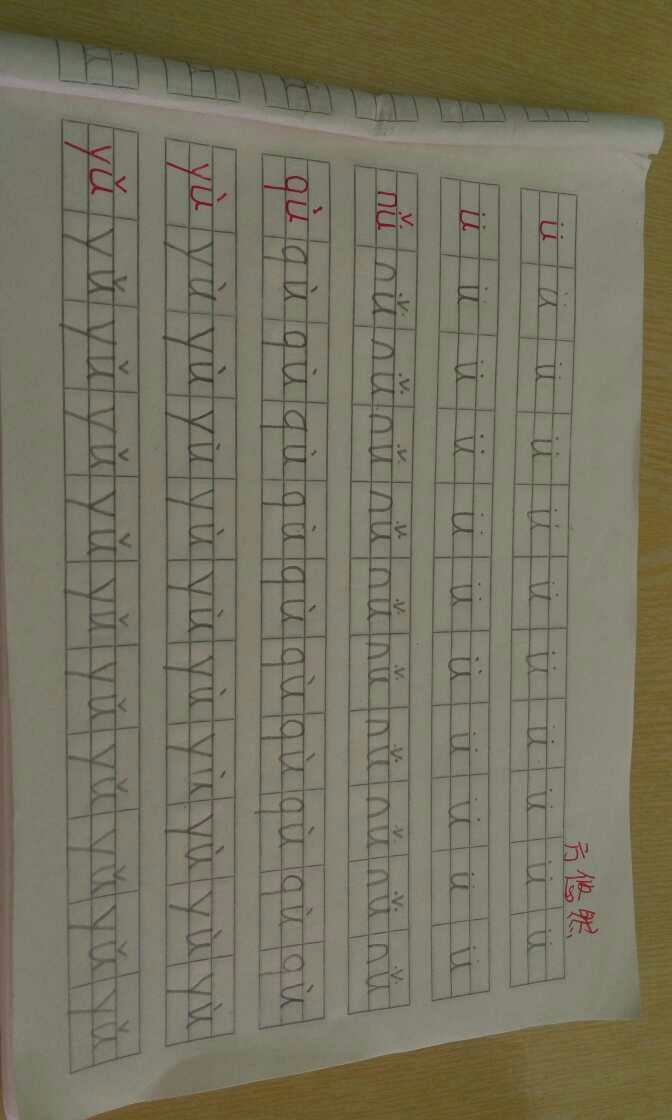 方悠然
ü ü ü ü ü ü ü ü ü ü ü
ü ü ü ü ü ü ü ü ü ü ü
nǚ nǚ nǚ nǚ nǚ nǚ nǚ nǚ nǚ nǚ nǚ
qù qù qù qù qù qù qù qù qù qù qù
yù yù yù yù yù yù yù yù yù yù yù
yǔ yǔ yǔ yǔ yǔ yǔ yǔ yǔ yǔ yǔ yǔ